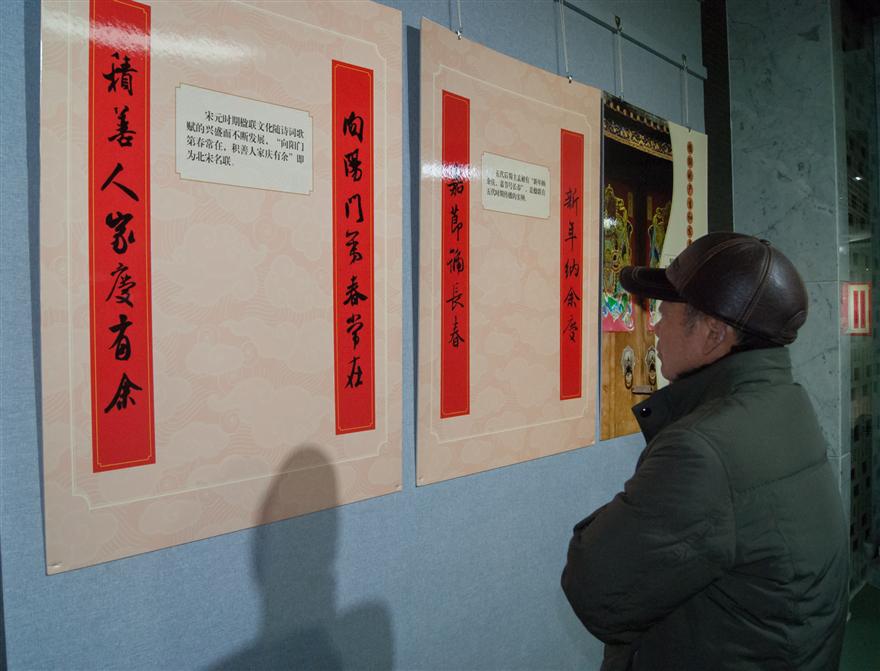 積善人家慶有余
宋元时期楹联文化随诗词歌
赋的兴盛而不断发展，“向阳门
第春常在，积善人家庆有余”即
为北宋名联。
向陽门第春常在
嘉節號長春
五代后蜀主孟昶有“新年纳
余庆，嘉节号长春”，是楹联在
五代时期传播的实例。
新年納余慶